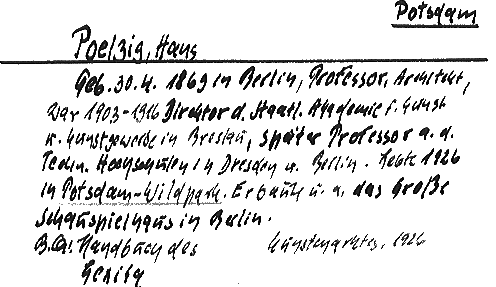 Potsdam
Poelzig, Hans
Geb. 30.4. 1869 in Berlin, Professor, Architekt,
War 1903-1916 Direktor d. Staatl. Akademie f. Kunst
u. Kunstgewerbe in Breslau, später Professor a. d.
Techn. Hochschulen in Dresden u. Berlin. Lebte 1926
in Potsdam-Wildpark. Erbaute u. a. das Große
Schauspielhaus in Berlin.
Handbuch des Kunstmarktes, 1926